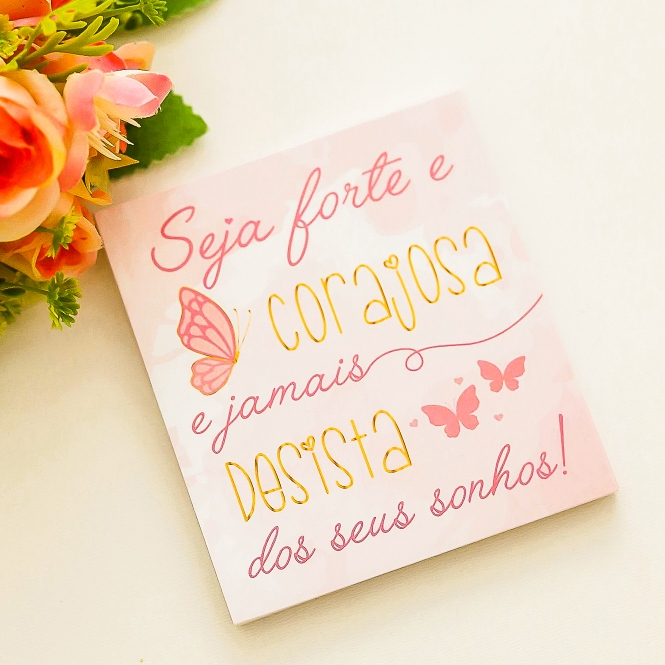 Seja forte e
corajosa
e jamais
Desista
dos seus sonhos!